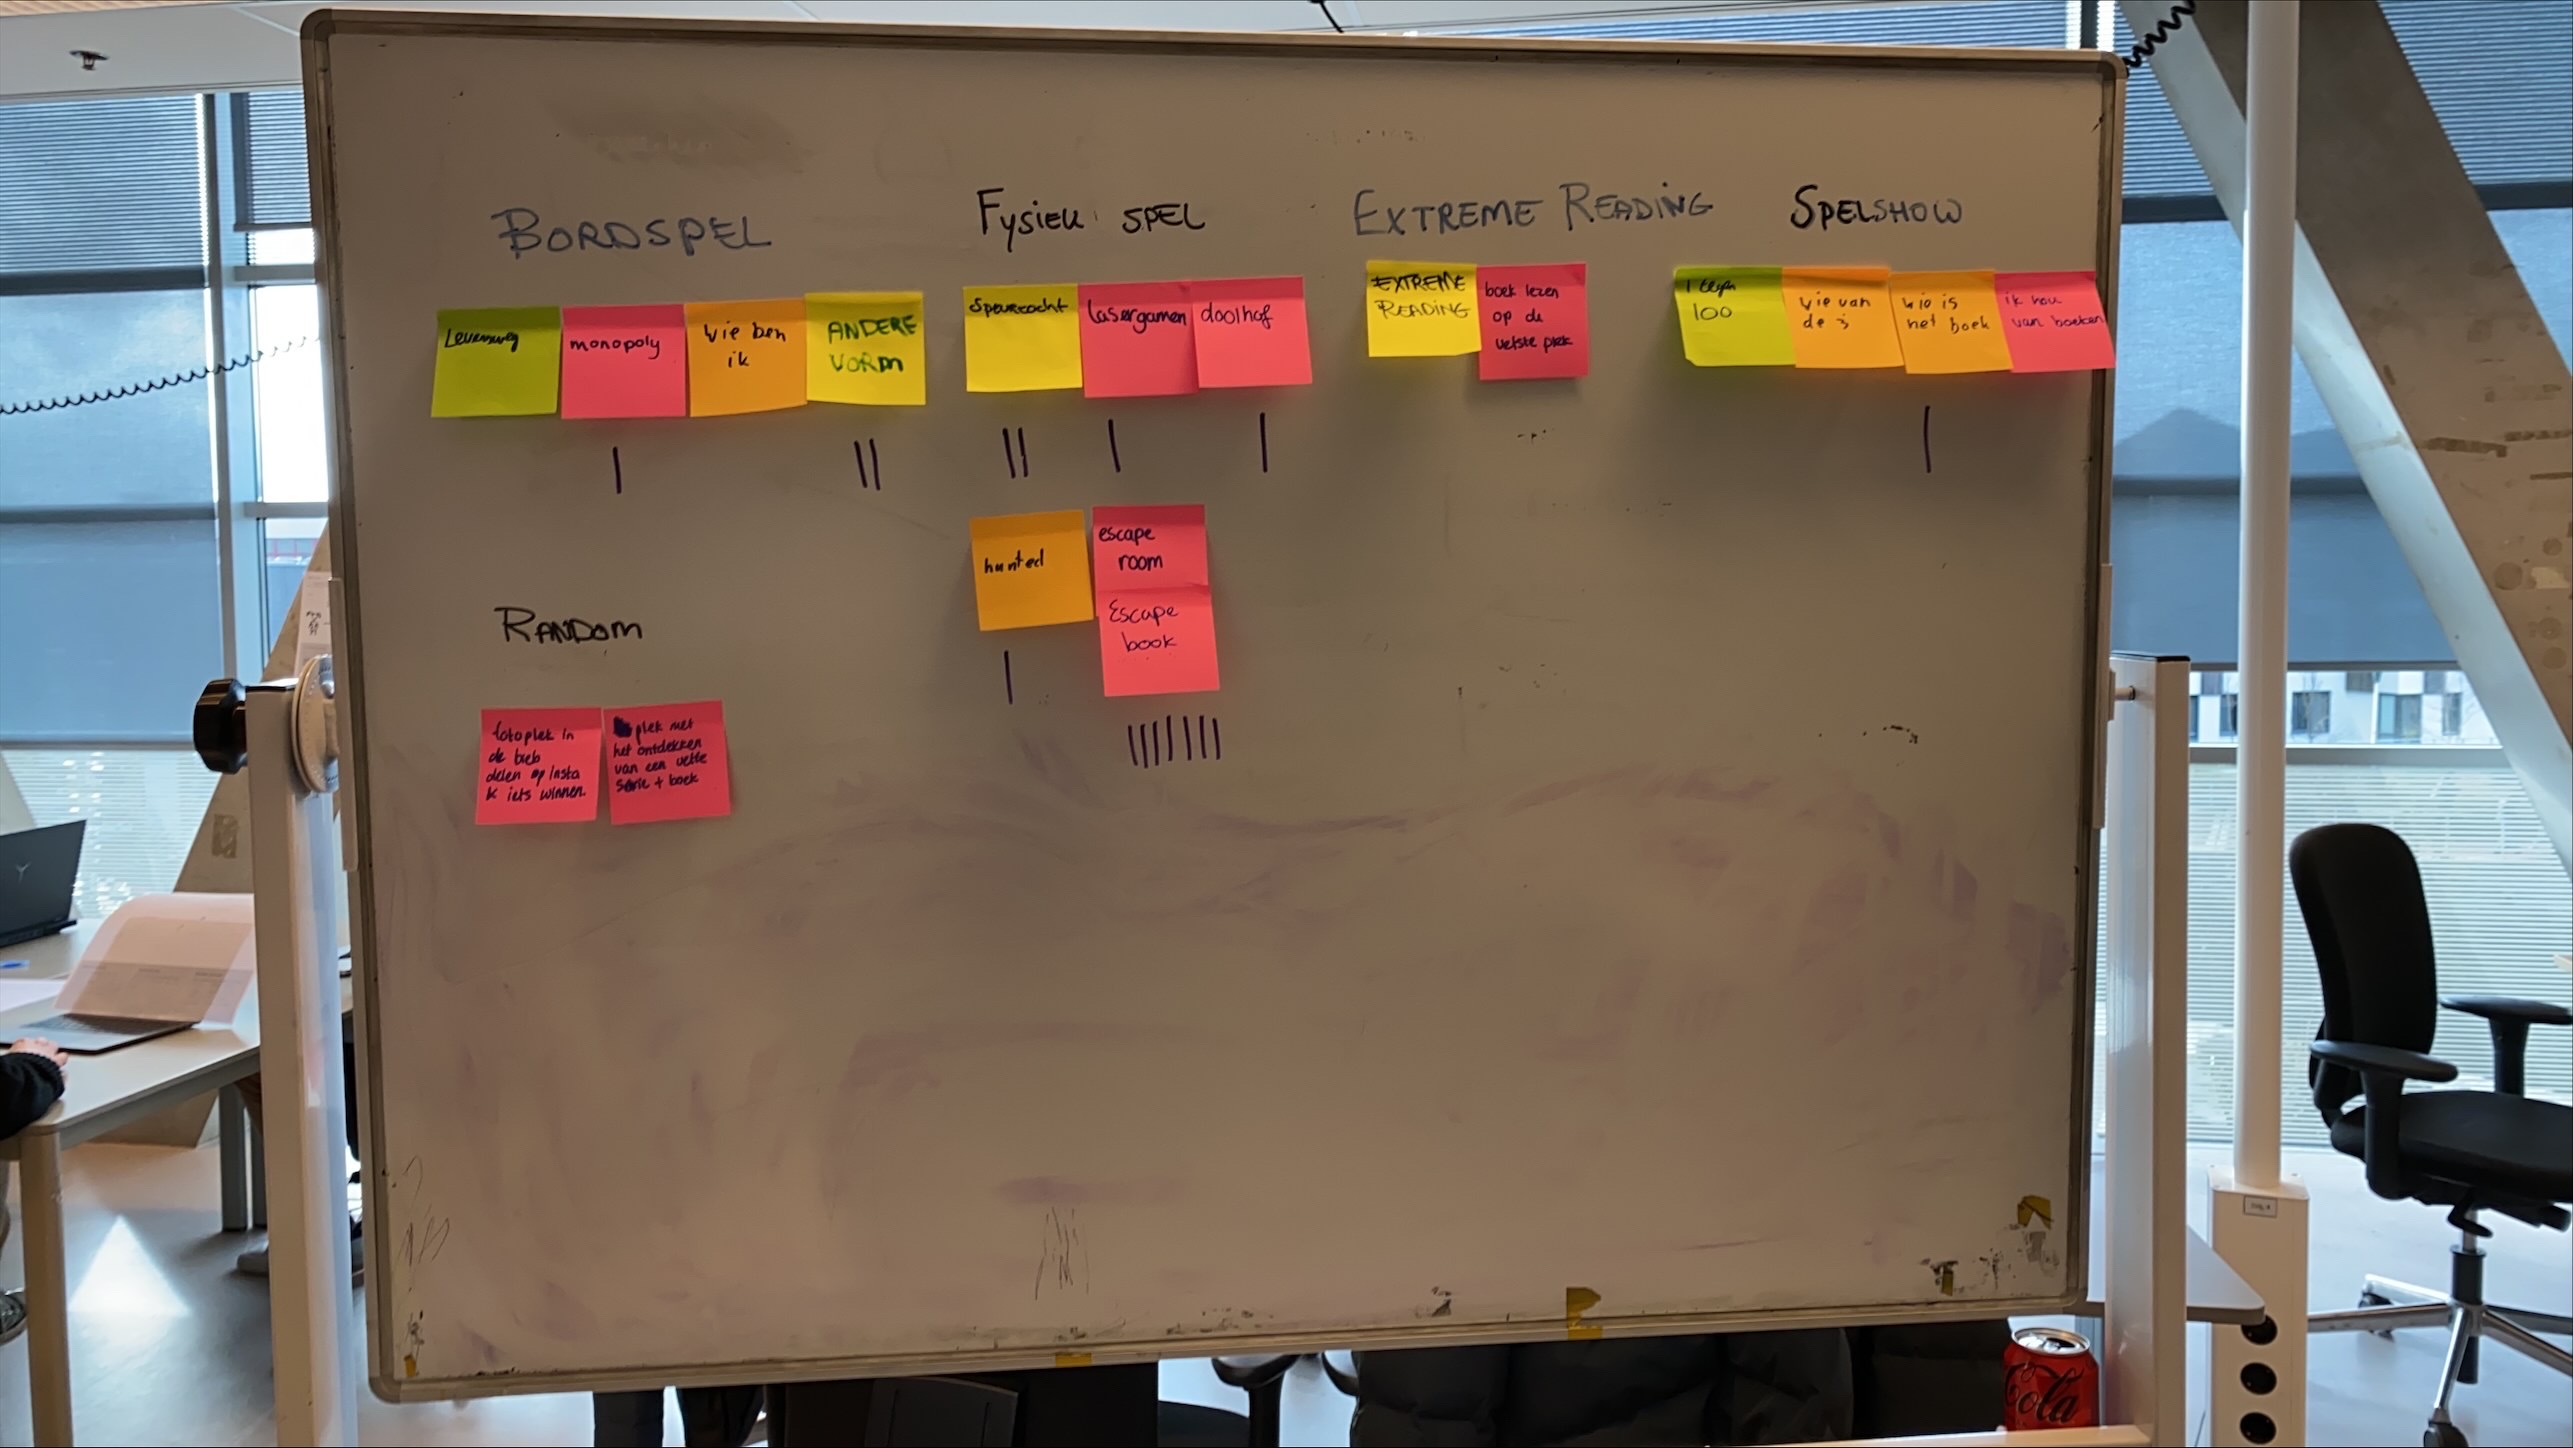 BORDSPEL
Levensweg
monopoly
wie ben
ik
ANDERE
VORM
Fysiek SPEL
Speurtocht
lasergamen
doolhof
hunted
escape
room
Escape
book
EXTREME READING
EXTREME
READING
boek lezen
op de
vetste plek
SPELSHOW
1 tegen
100
wie van
de 3
wie is
het boek
ik hou
van boeken
RANDOM
fotoplek in
de bieb
delen op insta
k iets winnen.
plek met
het ontdekken
van een vette
serie + boek
Cola